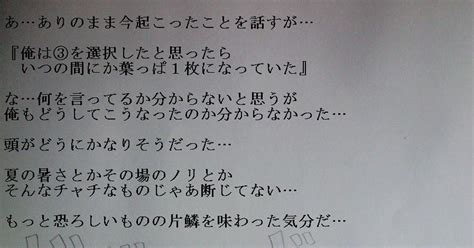 あ…ありのまま今起こったことを話すが…
『俺は③を選択したと思ったら
いつの間にか葉っぱ１枚になっていた』
な…何を言ってるか分からないと思うが
俺もどうしてこうなったのか分からなかった…
頭がどうにかなりそうだった…
夏の暑さとかその場のノリとか
そんなチャチなものじゃあ断じてない…
もっと恐ろしいものの片鱗を味わった気分だ…